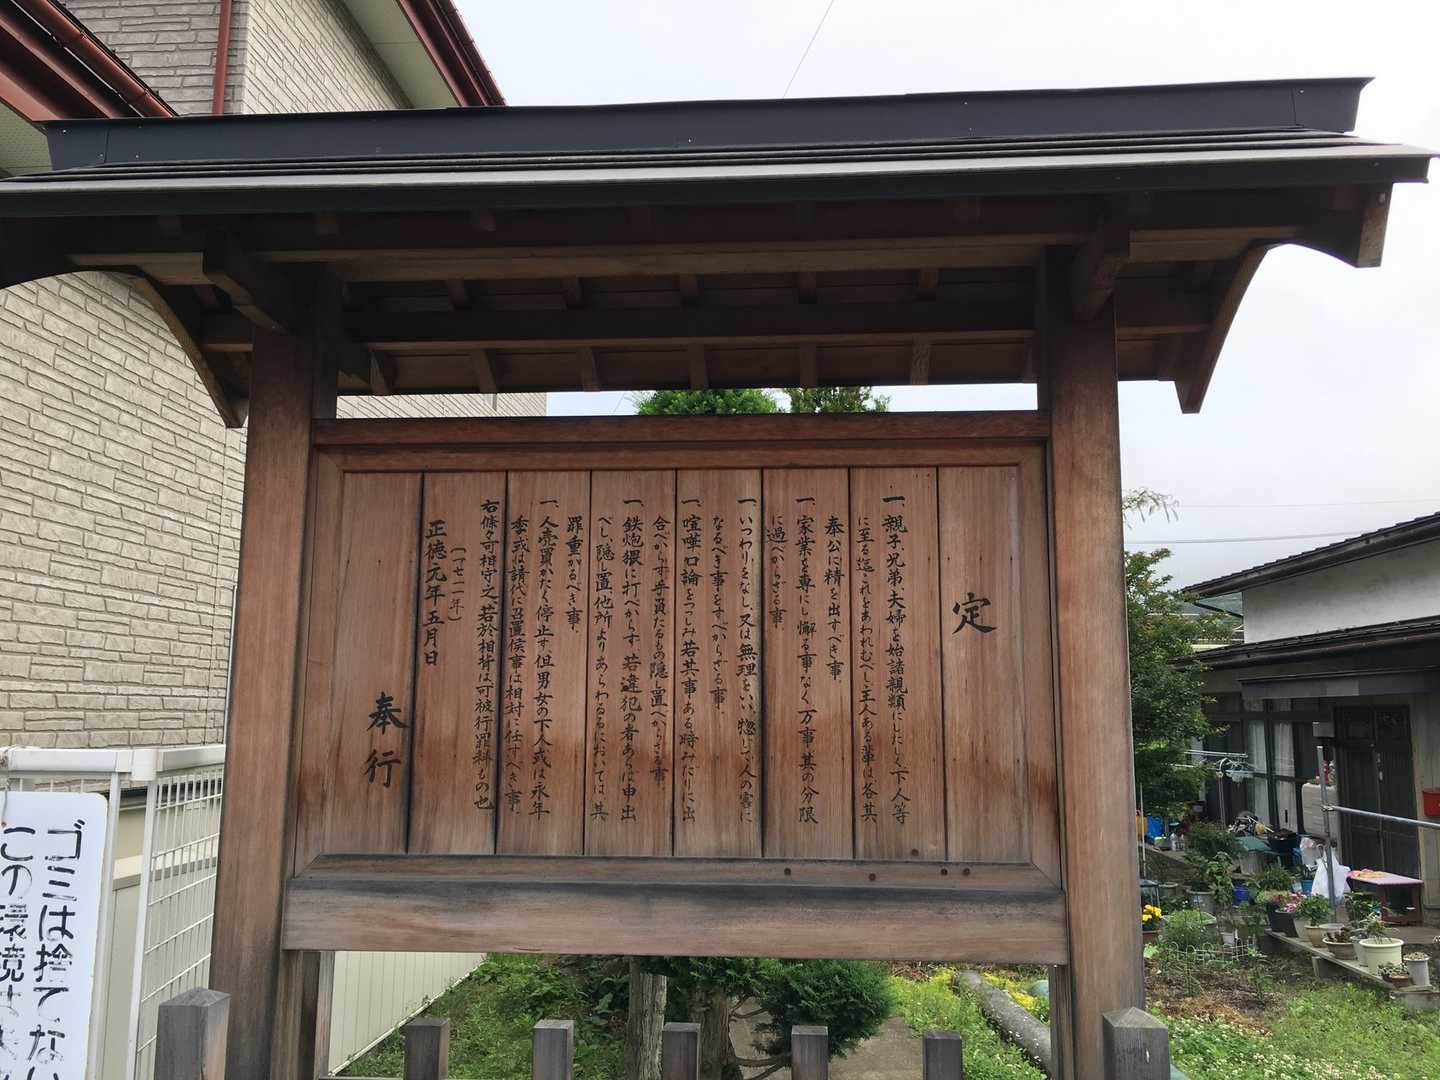 定
一、親子兄弟、夫婦を始諸親類にしたしく下人等
に至る迄これをあわれむべし、主人ある輩は、各其
奉公に精を出すべき事、
一、家業を専にし懈る事なく万事其の分限
に過べからざる事、
一、いつわりをなし、又は無理をいい、惣じて人の害に
なるべき事をすべからざる事、
一、喧嘩口論をつつしみ若其事ある時みだりに出
合べからず、手負たるもの隠し置べからざる事、
一、鉄炮猥に打べからず、若違犯の者あらば申出
べし、隠し置他所よりあらわるるにおいては其
罪重かるべき事、
一、人売買かたく停止す、但男女の下人或は永年
季或は譜代に召置候事は相対に任すべき事、
右條々可相守之、若於相背は可被行罪科もの也
正徳元年五月日
(一七一一年)
奉行
ゴミは捨てない
この環境